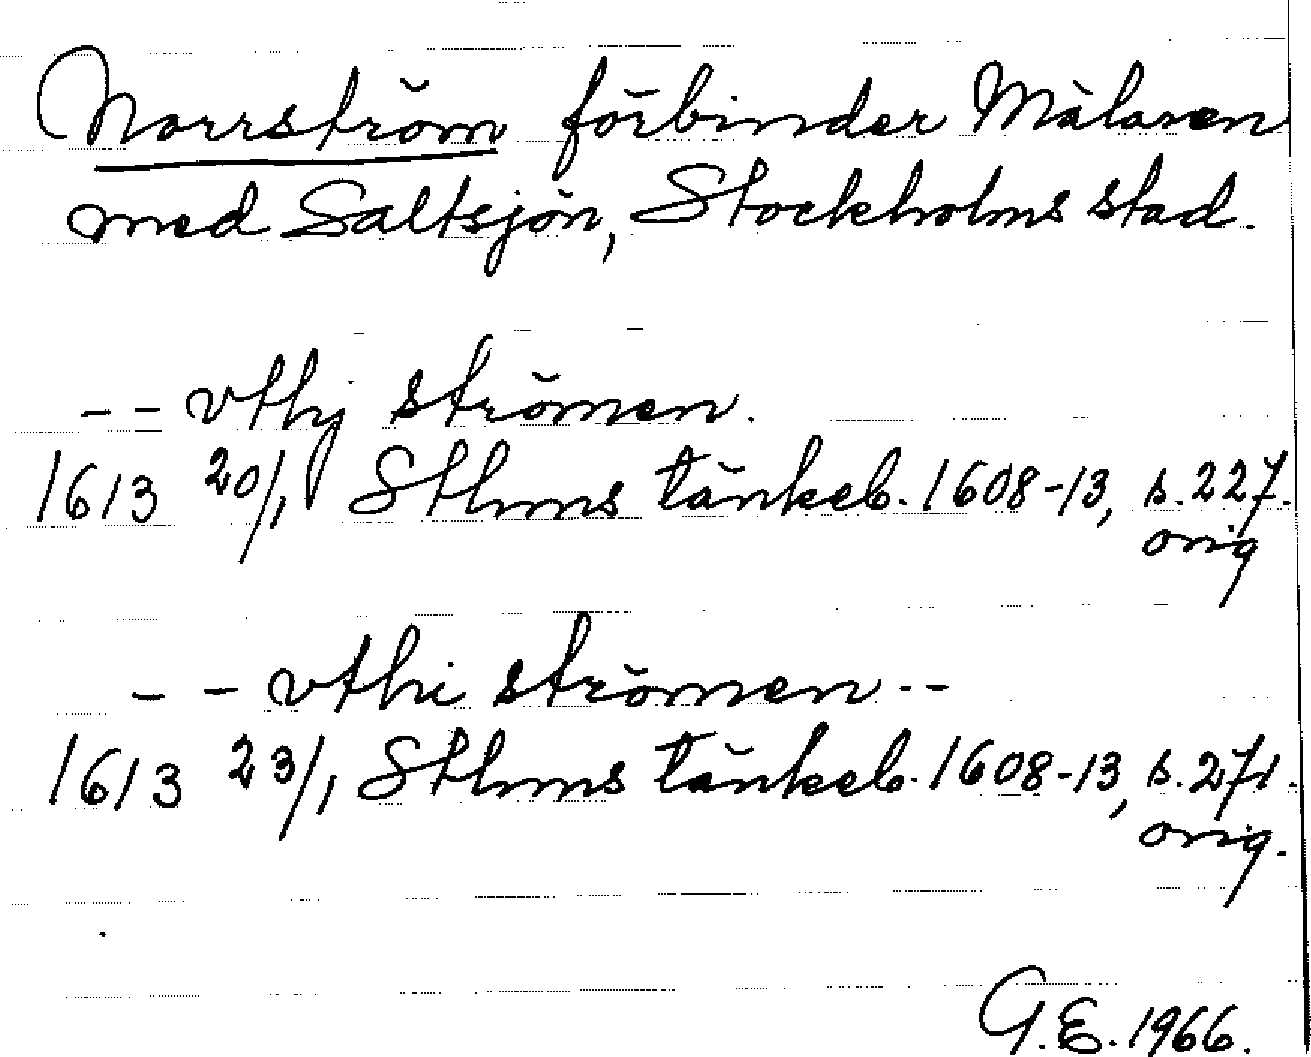 Norrström förbinder Mälaren
med Saltsjön, Stockholms stad.
-- vthj strömen.
1613 20/1 Sthms tänkeb. 1608-13, s. 227.
orig
-- vthi strömen --
1613 23/1 Sthms tänkeb. 1608-13, s. 271.
orig.
G.E. 1966.